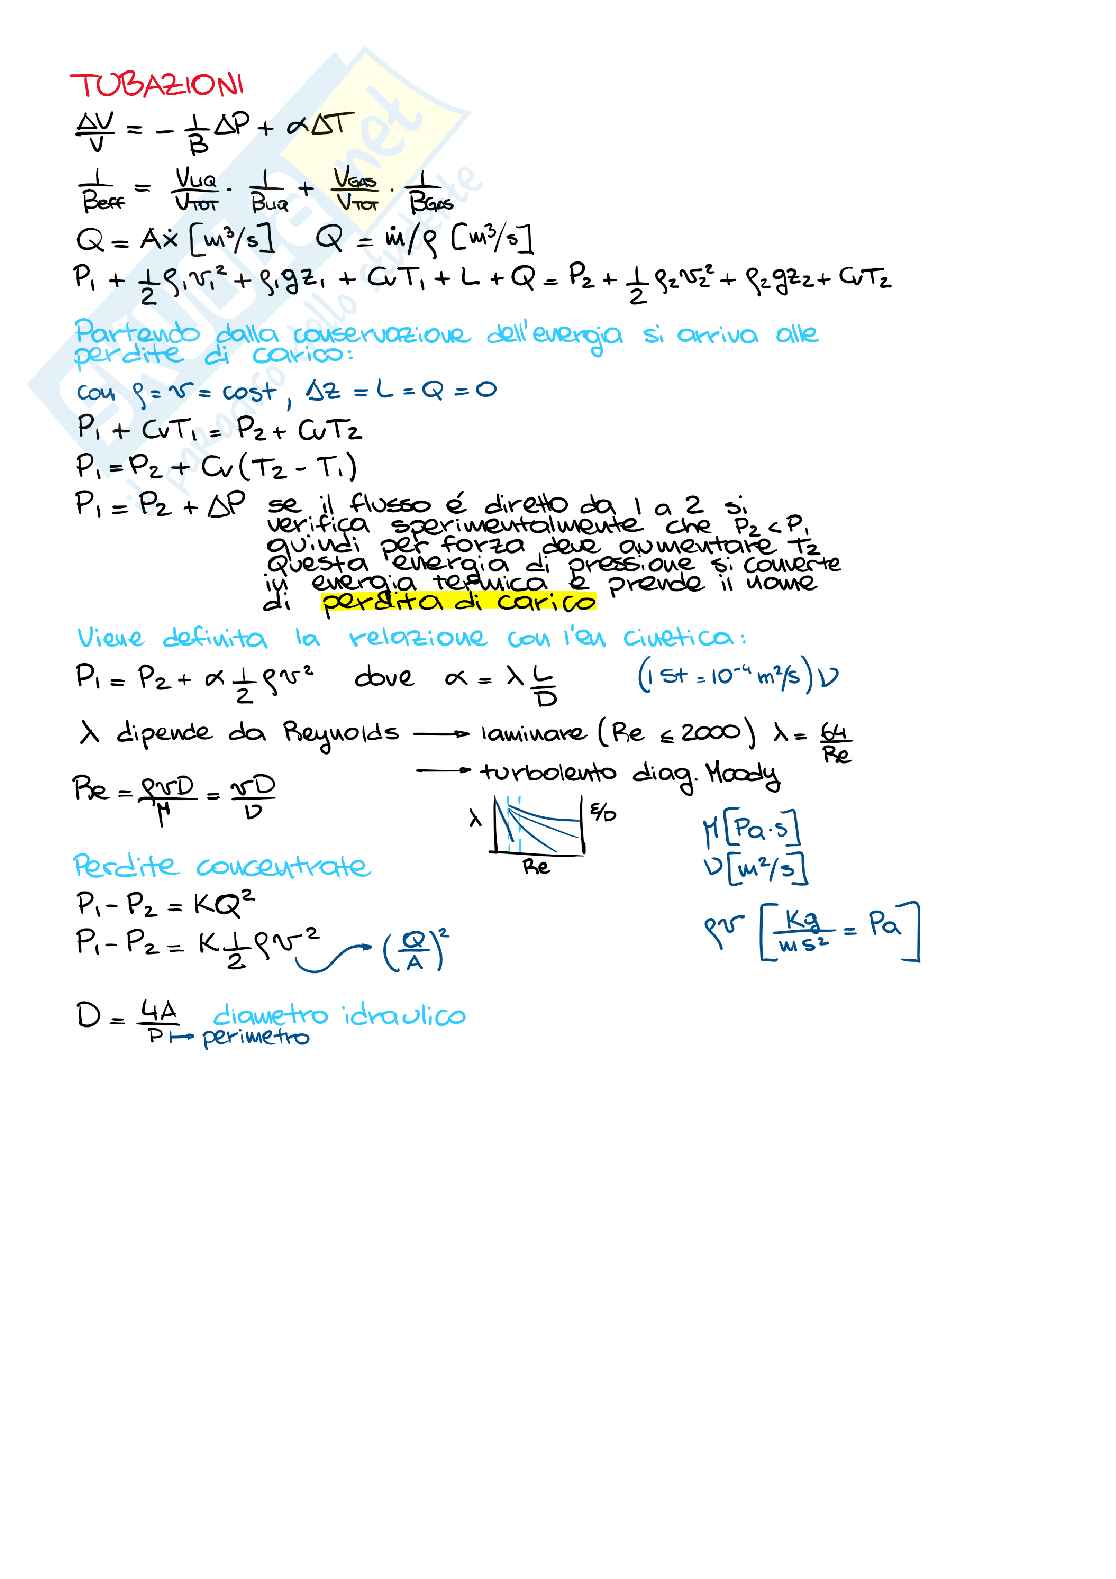 TUBAZIONI
ΔV/V = - 1/B ΔP + αΔT
1/Beff = VLIQ/VTOT · 1/BLIQ + VGAS/VTOT · 1/BGAS
Q = Aẋ [m³/s] Q = ṁ/ρ [m³/s]
P₁ + 1/2 ρ₁v₁² + ρ₁gz₁ + CvT₁ + L + Q = P₂ + 1/2 ρ₂v₂² + ρ₂gz₂ + CvT₂
Partendo dalla conservazione dell'energia si arriva alle
perdite di carico:
con ρ = v = cost, Δz = L = Q = 0
P₁ + CvT₁ = P₂ + CvT₂
P₁ = P₂ + Cv(T₂ - T₁)
P₁ = P₂ + ΔP se il flusso é diretto da 1 a 2 si
verifica sperimentalmente che P₂ < P₁
quindi per forza deve aumentare T₂
Questa energia di pressione si converte
in energia termica e prende il nome
di perdita di carico
Viene definita la relazione con l'en cinetica:
P₁ = P₂ + α 1/2 ρv² dove α = λ L/D (1 St = 10⁻⁴ m²/s) ν
λ dipende da Reynolds → laminare (Re ≤ 2000) λ = 64/Re
→ turbolento diag. Moody
Re = ρvD/μ = vD/ν
λ ε/D
Re
μ [Pa·s]
ν [m²/s]
Perdite concentrate
P₁ - P₂ = KQ²
P₁ - P₂ = K 1/2 ρv² → (Q/A)²
ρv [Kg/ms² = Pa]
D = 4A/P diametro idraulico
↦ perimetro
SKUOLA.net